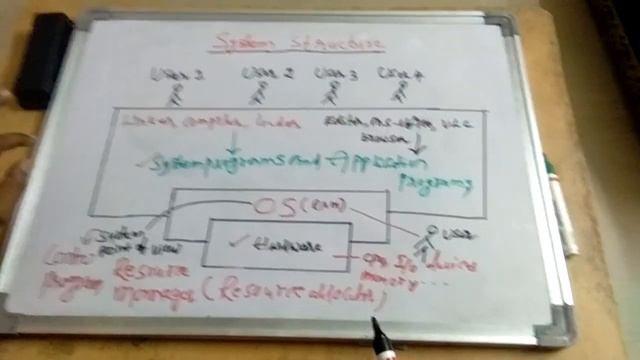 System Structure
User 1 User 2 User 3 User 4
Linker, compiler, Loader Editor, ms-office, VLC
browser
System programs and Application
Programs
OS(
✓ Hardware
System
point of view
User
Control Resource CPU, I/o devices
Program manager (Resource allocator) memory...